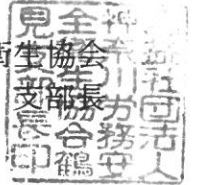 衛生協会
支部長
公益社団法人
神奈川労務安
全衛生協会鶴
見支部長印